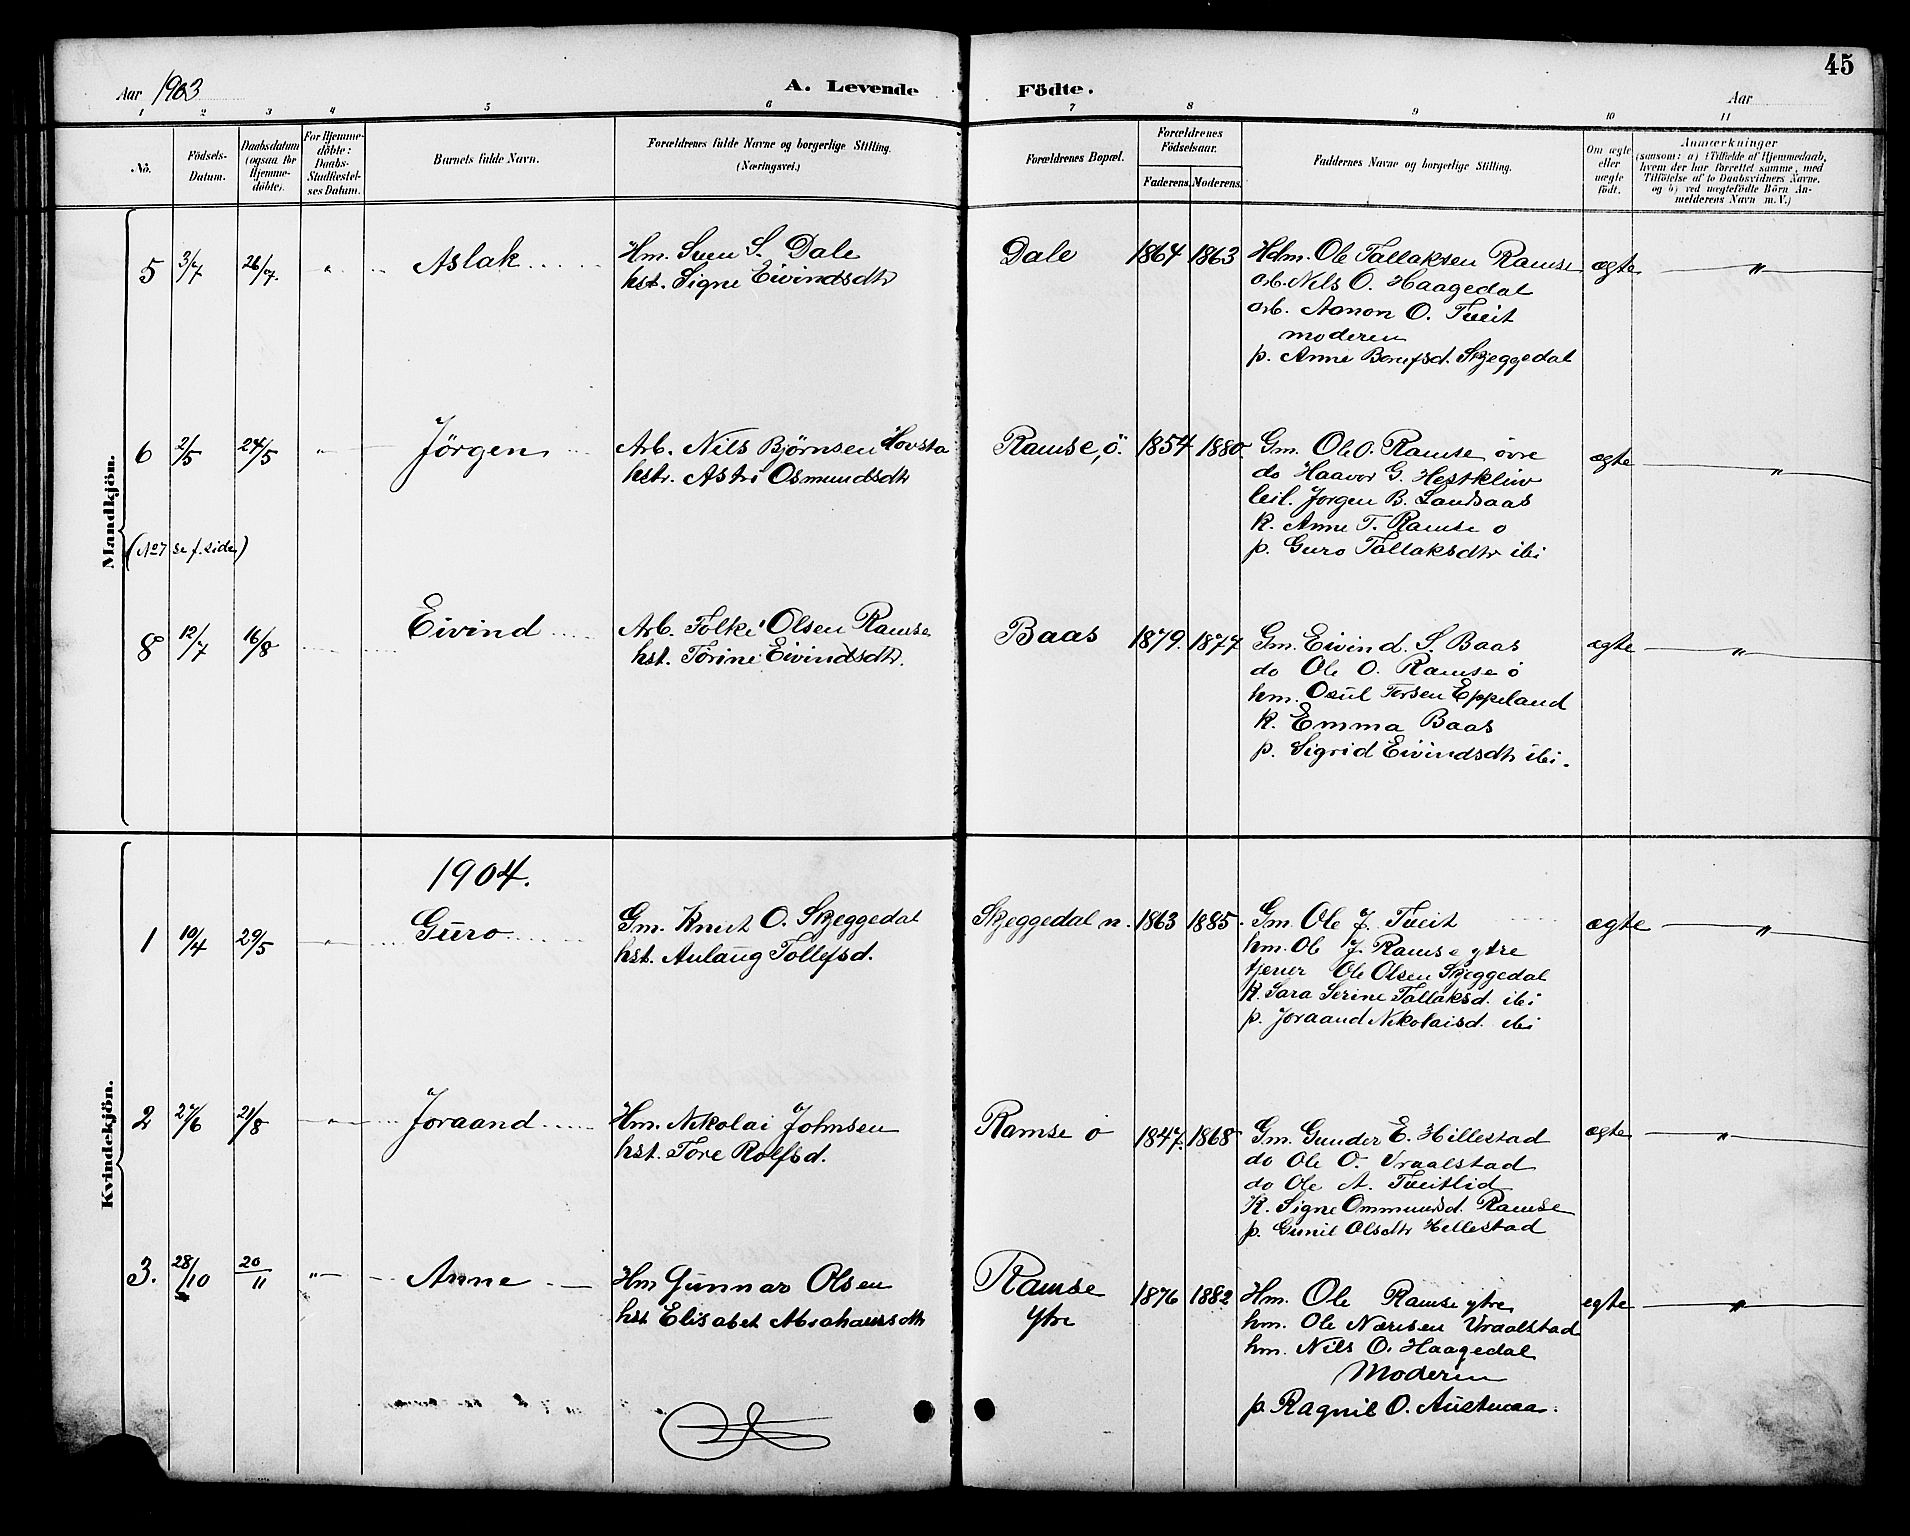 45
Aar 1903
A. Levende Födte.
Aar
1 2 3 4 5 6 7 8 9 10 11
No.
Födsels-Datum.
Daabsdatum (ogsaa for Hjemme-döbte).
For Hjemme-döbte: Daabs-Stadfæstel-ses Datum.
Barnets fulde Navn.
Forældrenes fulde Navne og borgerlige Stilling. (Næringsvei.)
Forældrenes Bopæl.
Forældrenes Födselsaar.
Faderens. Moderens.
Faddernes Navne og borgerlige Stilling.
Om ægte eller uægte födt.
Anmærkninger
(saasom: a) i Tilfælde af Hjemmedaab,
hvem der har forrettet samme, med
Tilföielse af to Daabsvidners Navne,
og b) ved uægtefödte Börn An-
melderens Navn m. V.)
Mandkjön.
5 3/7 26/7. " Aslak
Hm. Sven S. Dale
hst. Signe Eivindsdtr
Dale 1864 1863
Hdm. Ole Tallaksen Ramse
arb. Nils O. Haagedal
arb. Aanon O. Tveit
moderen
p. Anne Skjeggedal
ægte "
6 2/5 24/5 " Jörgen
Arb. Nils Bjørnsen Hovsta
hstr. Astri Osmundsdtr
Ramse, ö. 1854 1880
Gm. Ole O. Ramse övre
do Haavor G. Hestkleiv
leil. Jorgen B. Landsaas
K. Anne T. Ramse o
p. Guro Tallaksdtr ibi
ægte "
(No 7 se f. side)
8 12/7 16/8 Eivind
Arb. Folke Olsen Ramse
hst. Torine Eivindsdtr.
Baas 1879. 1877
Gm. Eivind S. Baas
do Ole O. Ramse ö
hm. Osul Torsen Eppeland
K. Emma Baas
p. Sigrid Eivindsdtr ibi.
ægte "
Kvindekjön.
1904.
1 10/4 29/5 " Guro
Gm. Knut O. Skjeggedal
hst. Aulaug Tollefsd.
Skjeggedal n. 1863 1885
Gm. Ole J. Tveit
hm. Ol J. Ramse ytre
tjener Ole Olsen Skjeggedal
K. Sara Serine Tallaksd. ibi
p. Joraand Nikolaisd. ibi
ægte "
2 27/6 21/8 " Joraand
Hm. Nikolai Johnsen
hst. Tore Rolfsd.
Ramse ö 1847. 1868
Gm. Gunder E. Hillestad
do Ole O. Vraalstad
do Ole A. Tveitlid
K. Signe Ommundsd. Ramse
p. Gunil Olsdtr Hellestad
ægte "
3. 28/10 20/11 " Anne
Hm Gunnar Olsen
hst Elisabet Abrahamsdtr
Ramse
ytre
1876 1882
Hm. Ole Ramse ytre
hm. Ole Nærisen Vraalstad
hm. Nils O. Haagedal
Moderen
p. Ragnil O.
egte "